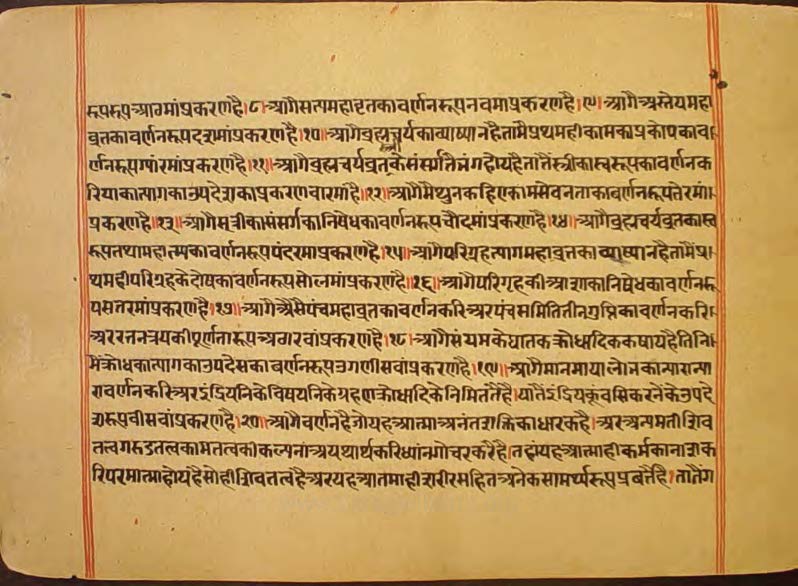 रूपरूप आठमां प्रकरण है।८ आगै सत्यमहाव्रतका वर्णनरूप नवमा प्रकरण है।९। आगै अस्तेय महा
व्रतका वर्णनरूप दशमां प्रकरण है।१०॥ आगै ब्रह्मचर्यका व्याख्यान है तामै प्रथमही कामका प्रकोपका व
र्णनरूप ग्यारमां प्रकरण है।११॥ आगै ब्रह्मचर्यव्रतकै संसर्गतै भंग होय है तातैं स्त्रीका स्वरूपका वर्णन क
रि याका त्यागका उपदेशका प्रकरण बारमां है॥१२॥ आगै मैथुन कहिए कामसेवन ताका वर्णनरूप तेरमां
प्रकरण है॥१३॥ आगै स्त्रीका संसर्गका निषेधका वर्णनरूप चौदमां प्रकरण है॥१४॥ आगै ब्रह्मचर्यव्रतका स्व
रूप तथा महात्मका वर्णनरूप पंदरमा प्रकरण है।१५॥ आगै परिग्रहत्याग महाव्रतका व्याख्यान है तामै प्र
थमही परिग्रहके दोषका वर्णनरूप सोलमां प्रकरण है॥१६॥ आगै परिगृहकी आशाका निषेधका वर्णनरू
प सतरमां प्रकरण है।१७॥ आगै औसै पंच महाव्रतका वर्णन करि अर पंच समिति तीन गुप्तिका वर्णन करि
अर रतनत्रयकी पूर्णतारूप अठारवां प्रकरण है।१८ आगै संयमके घातक क्रोधादिक कषाय है तिनि
मैं क्रोधका त्यागका उपदेसका वर्णनरूप उगणीसवां प्रकरण है।१९॥ आगै मान माया लोनका त्या
रा वर्णन करि अर इंद्रियनिके विषयनिके ग्रहण क्रोधादिके निमित्त है। यातैं इंद्रियकूं वसि करनेके उपदे
शरूप वीसवां प्रकरण है।२०॥ आगै वर्णन है जो यह आत्मा अनंत शक्तिका धारक है। अर अन्यमती शिव
तत्व गरुडतत्व कामतत्वकी कल्पना अयथार्थ करि ध्यांनगोचर करै है। तहां यह आत्माही कर्मका नाश क
रि परमात्मा होय है सो ही शिवतत्व है अर यह आतमाही शरीर सहित अनेक सामर्थ्यरूप प्रवर्त्तै है। तातैं ग